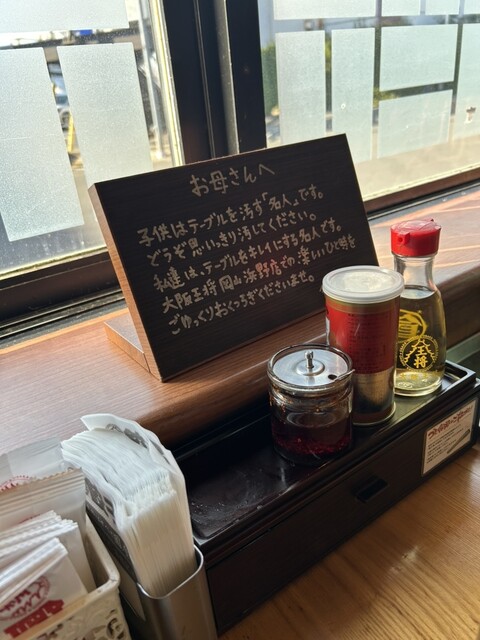 お母さんへ
子供はテーブルを汚す「名人」です。
どうぞ思いっきり汚してください。
私達は、テーブルをキレイにする名人です。
大阪王将岡山浜野店での楽しいひと時を
ごゆっくりおくつろぎくださいませ。
王将